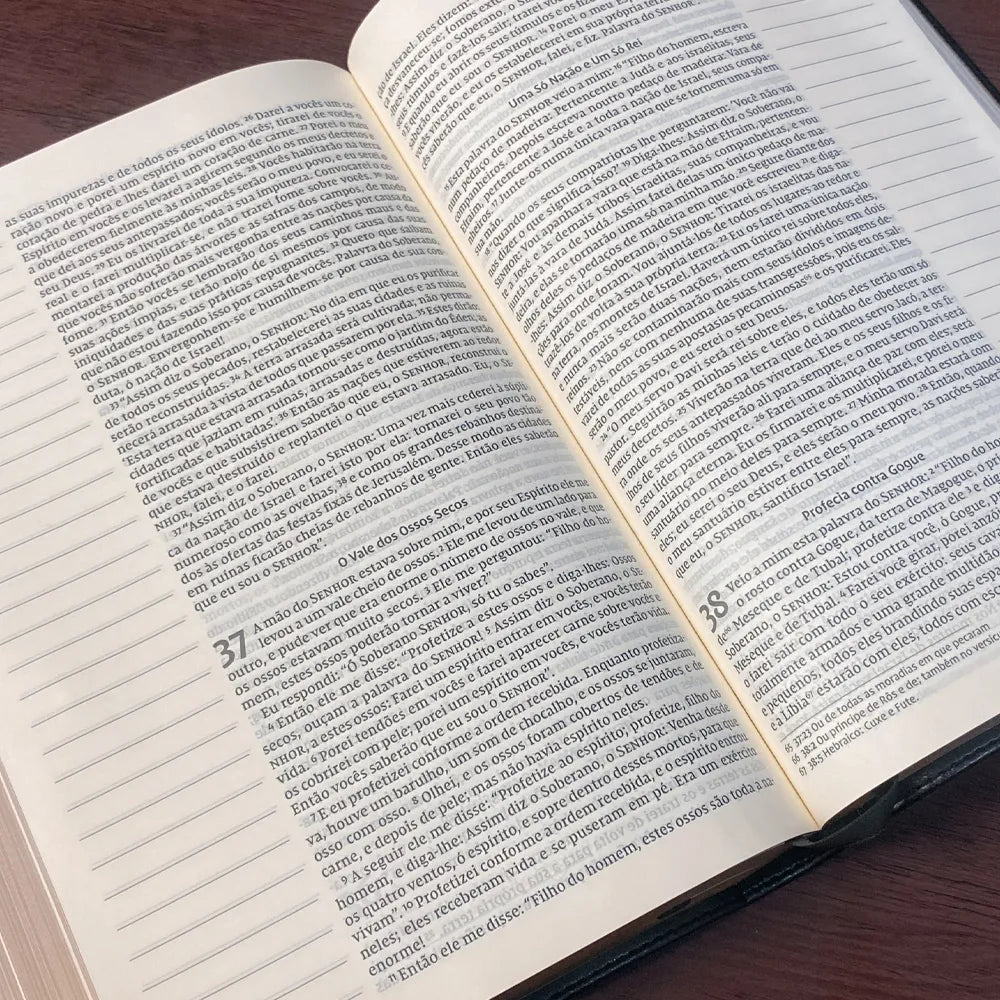 as suas impurezas e de todos os seus ídolos. 26 Darei a vocês um co-
ração novo e porei um espírito novo em vocês; tirarei de vocês o
coração de pedra e lhes darei um coração de carne. 27 Porei o meu
Espírito em vocês e os levarei a agirem segundo os meus decretos e
a obedecerem fielmente às minhas leis. 28 Vocês habitarão na terra
que dei aos seus antepassados; vocês serão o meu povo, e eu serei o
seu Deus. 29 Eu os livrarei de toda a sua impureza. Convocarei o ce-
real e o farei multiplicar-se, e não trarei fome sobre vocês. 30 Au-
mentarei a produção das árvores e as safras dos campos, de modo
que vocês não sofrerão mais vergonha entre as nações por causa da
fome. 31 Então vocês se lembrarão dos seus caminhos maus e das
suas ações ímpias, e terão nojo de si mesmos por causa das suas
iniquidades e das suas práticas repugnantes. 32 Quero que saibam
que não estou fazendo isso por causa de vocês. Palavra do Soberano,
o SENHOR. Envergonhem-se e humilhem-se por causa de sua con-
duta, ó nação de Israel!
33 "Assim diz o Soberano, o SENHOR: No dia em que eu os purificar
de todos os seus pecados, restabelecerei as suas cidades e as ruínas
serão reconstruídas. 34 A terra arrasada será cultivada; não perma-
necerá arrasada à vista de todos que passarem por ela. 35 Estes dirão:
'Esta terra que estava arrasada tornou-se como o jardim do Éden; as
cidades que jaziam em ruínas, arrasadas e destruídas, agora estão
fortificadas e habitadas'. 36 Então as nações que estiverem ao redor
de vocês e que subsistirem saberão que eu, o SENHOR, reconstruí o
que estava destruído e replantei o que estava arrasado. Eu, o SE-
NHOR, falei, e o farei.
37 "Assim diz o Soberano, o SENHOR: Uma vez mais cederei à súpli-
ca da nação de Israel e farei isto por ela: tornarei o seu povo tão
numeroso como as ovelhas, 38 e como os grandes rebanhos destina-
dos às ofertas das festas fixas de Jerusalém. Desse modo as cidades
em ruínas ficarão cheias de rebanhos de gente. Então eles saberão
que eu sou o SENHOR".
O Vale dos Ossos Secos
37 A mão do SENHOR estava sobre mim, e por seu Espírito ele me
levou a um vale cheio de ossos. 2 Ele me levou de um lado para
outro, e pude ver que era enorme o número de ossos no vale, e que
os ossos estavam muito secos. 3 Ele me perguntou: "Filho do ho-
mem, estes ossos poderão tornar a viver?"
Eu respondi: "Ó Soberano SENHOR, só tu o sabes".
4 Então ele me disse: "Profetize a estes ossos e diga-lhes: Ossos
secos, ouçam a palavra do SENHOR! 5 Assim diz o Soberano, o SE-
NHOR, a estes ossos: Farei um espírito entrar em vocês, e vocês terão
vida. 6 Porei tendões em vocês e farei aparecer carne sobre vocês e
os cobrirei com pele; porei um espírito em vocês, e vocês terão vida.
Então vocês saberão que eu sou o SENHOR".
7 E eu profetizei conforme a ordem recebida. Enquanto profetiza-
va, houve um barulho, um som de chocalho, e os ossos se juntaram,
osso com osso. 8 Olhei, e os ossos foram cobertos de tendões e de
carne, e depois de pele; mas não havia espírito neles.
9 A seguir ele me disse: "Profetize ao espírito; profetize, filho do
homem, e diga-lhe: Assim diz o Soberano, o SENHOR: Venha desde
os quatro ventos, ó espírito, e sopre dentro desses mortos, para que
vivam". 10 Profetizei conforme a ordem recebida, e o espírito entrou
neles; eles receberam vida e se puseram em pé. Era um exército
enorme!
11 Então ele me disse: "Filho do homem, estes ossos são toda a na-
ção de Israel. Eles dizem
ça desvaneceu-se; fomos exter
lhes: Assim diz o Soberano, o SENHOR:
os seus túmulos e fazê-los sair; trarei vocês
13 E quando eu abrir os seus túmulos e os fizer
saberão que eu sou o SENHOR. 14 Porei o meu Espírito
vocês viverão, e eu os estabelecerei em sua própria terra
saberão que eu, o SENHOR, falei, e fiz. Palavra do SENHOR".
Uma Só Nação e Um Só Rei
15 Esta palavra do SENHOR veio a mim: 16 "Filho do homem, escreva
num pedaço de madeira: Pertencente a Judá e aos israelitas, seus
companheiros. Depois escreva noutro pedaço de madeira: Vara de
Efraim, pertencente a José e a toda a nação de Israel, seus compa-
nheiros. 17 Junte-os numa única vara para que se tornem uma só em
sua mão.
18 "Quando os seus compatriotas lhe perguntarem: 'Você não vai
nos dizer o que significa isso?' 19 Diga-lhes: Assim diz o Soberano, o
SENHOR: Vou apanhar a vara que está na mão de Efraim, pertencente
a José e às demais tribos israelitas, suas companheiras, e vou
juntá-la à vara de Judá. Assim farei delas um único pedaço de ma-
deira, e elas se tornarão uma só na minha mão. 20 Segure diante dos
olhos deles os pedaços de madeira em que você escreveu 21 e diga-
lhes: Assim diz o Soberano, o SENHOR: Tirarei os israelitas das na-
ções para onde foram. Vou ajuntá-los de todos os lugares ao redor e
trazê-los de volta à sua própria terra. 22 Eu os farei uma única nação
na terra, nos montes de Israel. Haverá um único rei sobre todos eles,
e nunca mais serão duas nações, nem estarão divididos em dois
reinos. 23 Não se contaminarão mais com seus ídolos e imagens de-
testáveis, nem com nenhuma de suas transgressões, pois eu os sal-
varei de todas as suas apostasias pecaminosas65 e os purificarei. Eles
serão o meu povo, e eu serei o seu Deus.
24 "O meu servo Davi será rei sobre eles, e todos eles terão um só
pastor. Seguirão as minhas leis e terão o cuidado de obedecer aos
meus decretos. 25 Viverão na terra que dei ao meu servo Jacó, a terra
onde os seus antepassados viveram. Eles e os seus filhos e os fi-
lhos de seus filhos viverão ali para sempre, e o meu servo Davi será
o seu líder para sempre. 26 Farei uma aliança de paz com eles; será
uma aliança eterna. Eu os firmarei e os multiplicarei, e porei o meu
santuário no meio deles para sempre. 27 Minha morada estará com
eles; eu serei o seu Deus, e eles serão o meu povo. 28 Então, quando
o meu santuário estiver entre eles para sempre, as nações saberão
que eu, o SENHOR, santifico Israel".
Profecia contra Gogue
38 Veio a mim esta palavra do SENHOR: 2 "Filho do ho
o rosto contra Gogue, da terra de Magogue, o pr
de66 Meseque e de Tubal; profetize contra ele 3 e diga
Soberano, o SENHOR: Estou contra você, ó Gogue, p
Meseque e de Tubal. 4 Farei você girar, porei anzó
o farei sair com todo o seu exército, seus cava
totalmente armados e uma grande multidão
e pequenos, todos eles brandindo suas esp
e a Líbia67 estarão com eles, todos com es
65 37:23 Ou de todas as moradias em que pecaram
66 38:2 Ou príncipe de Rôs e de; também no versíc
67 38:5 Hebraico: Cuxe e Fute.